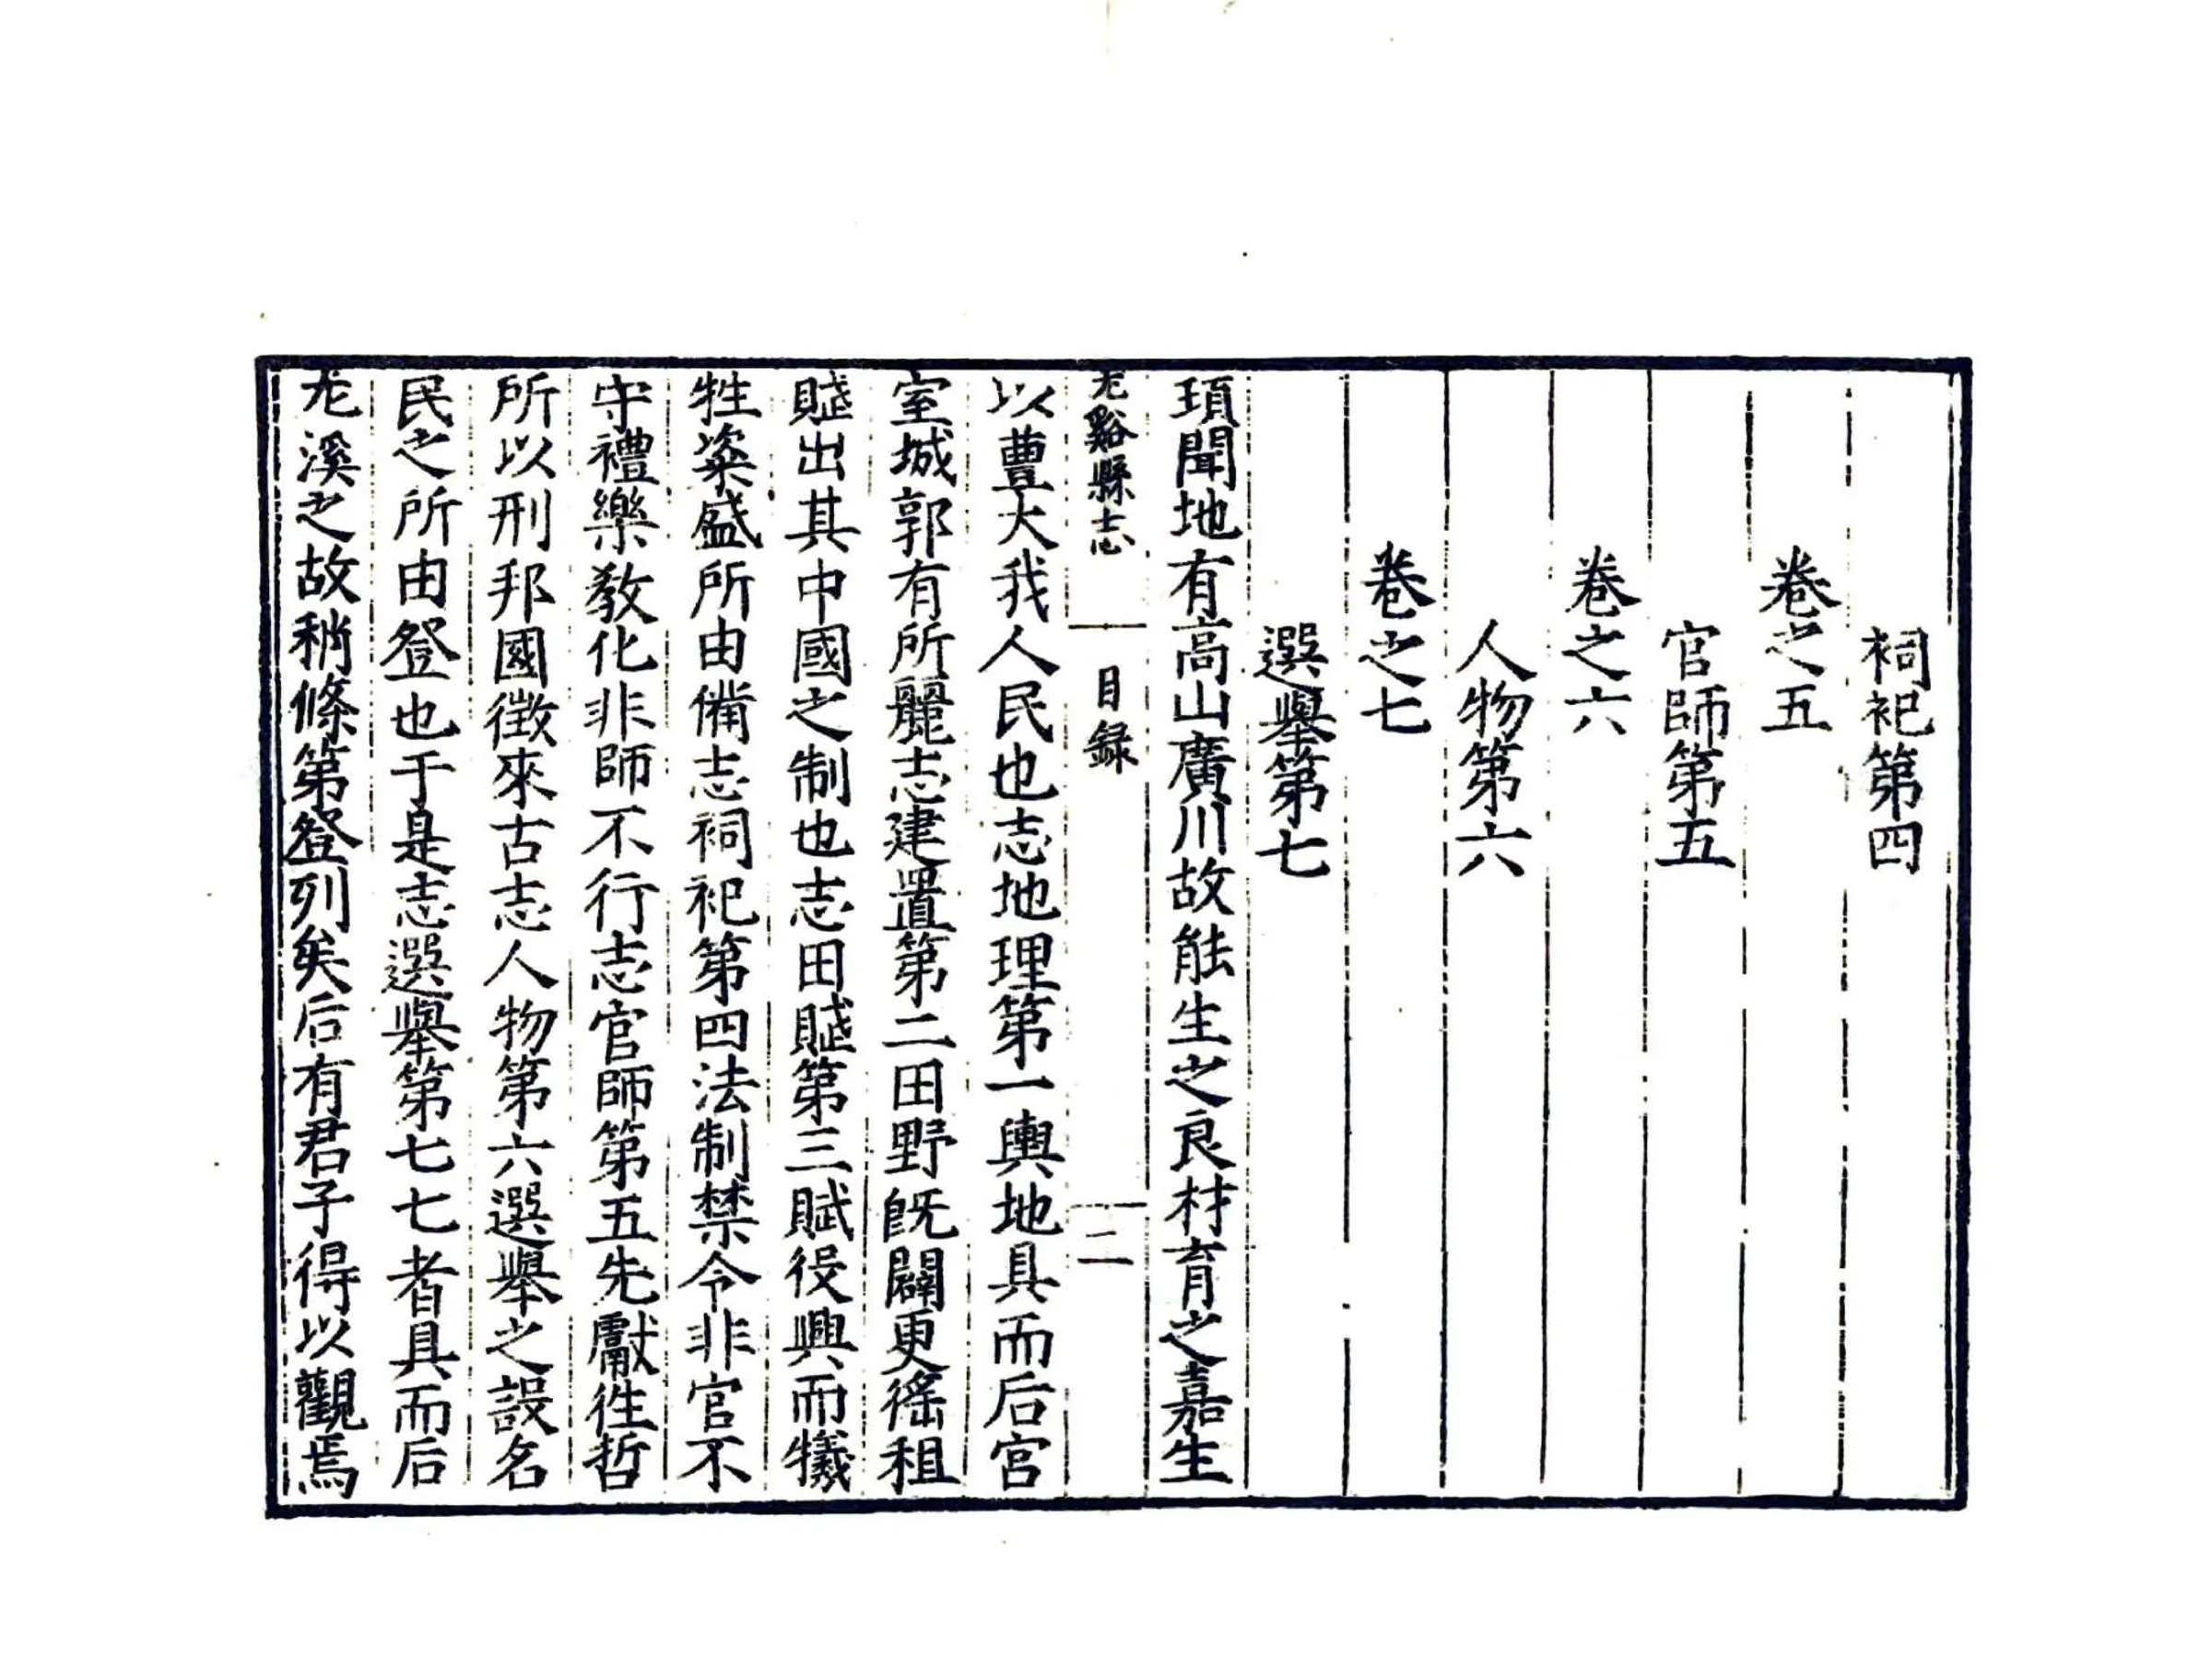 祠祀第四
卷之五
官師第五
卷之六
人物第六
卷之七
選舉第七
頊聞地有高山廣川故能生之良材育之嘉生
尤谿縣志 目録 二
以豊大我人民也志地理第一輿地具而后宮
室城郭有所麗志建置第二田野旣闢更徭租
賦出其中國之制也志田賦第三賦役興而犧
牲粢盛所由備志祠祀第四法制禁令非官不
守禮樂教化非師不行志官師第五先獻徃哲
所以刑邦國徵來古志人物第六選舉之設名
民之所由登也于是志選舉第七七者具而后
尤溪之故稍條第登列矣后有君子得以觀焉